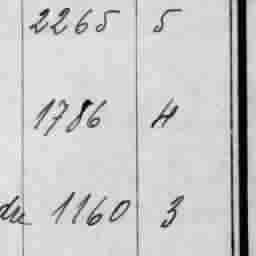 2265 5
1786 4
1160 3